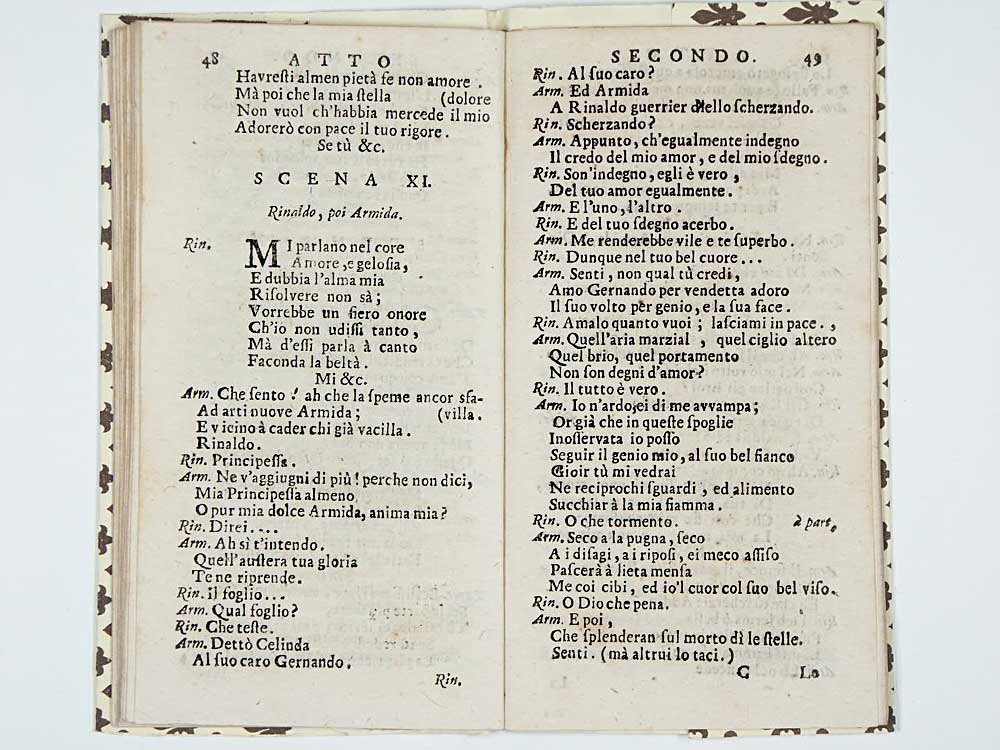 48 ATTO
Havresti almen pietà se non amore.
Mà poi che la mia stella (dolore
Non vuol ch'habbia mercede il mio
Adorerò con pace il tuo rigore.
Se tù &c.
SCENA XI.
Rinaldo, poi Armida.
Rin. MI parlano nel core
Amore, e gelosia,
E dubbia l'alma mia
Risolvere non sà;
Vorrebbe un fiero onore
Ch'io non udissi tanto,
Mà d'essi parla à canto
Faconda la beltà.
Mi &c.
Arm. Che sento! ah che la speme ancor sfa-
Ad arti nuove Armida; (villa.
E vicino à cader chi già vacilla.
Rinaldo.
Rin. Principessa.
Arm. Ne v'aggiugni di più! perche non dici,
Mia Principessa almeno
O pur mia dolce Armida, anima mia?
Rin. Direi....
Arm. Ah sì t'intendo.
Quell'austera tua gloria
Te ne riprende.
Rin. il foglio...
Arm. Qual foglio?
Rin. Che teste.
Arm. Dettò Celinda
Al suo caro Gernando.
Rin.
SECONDO. 49
Rin. Al suo caro?
Arm. Ed Armida
A Rinaldo guerrier dièllo scherzando.
Rin. Scherzando?
Arm. Appunto, ch'egualmente indegno
Il credo del mio amor, e del mio sdegno.
Rin. Son'indegno, egli è vero,
Del tuo amor egualmente.
Arm. E l'uno, l'altro.
Rin. E del tuo sdegno acerbo.
Arm. Me renderebbe vile e te superbo.
Rin. Dunque nel tuo bel cuore...
Arm. Senti, non qual tù credi,
Amo Gernando per vendetta adoro
Il suo volto per genio, e la sua face.
Rin. Amalo quanto vuoi; lasciami in pace.,
Arm. Quell'aria marzial, quel ciglio altero
Quel brio, quel portamento
Non son degni d'amor?
Rin. Il tutto è vero.
Arm. Io n'ardo, ei di me avvampa;
Or già che in queste spoglie
Inosservata io posso
Seguir il genio mio, al suo bel fianco
Gioir tù mi vedrai
Ne reciprochi sguardi, ed alimento
Succhiar à la mia fiamma.
Rin. O che tormento. à part.
Arm. Seco a la pugna, seco
A i disagi, a i riposi, ei meco assiso
Pascerà à lieta mensa
Me coi cibi, ed io'l cuor col suo bel viso.
Rin. O Dio che pena.
Arm. E poi,
Che splenderan sul morto dì le stelle.
Senti. (mà altrui lo taci.)
C Lo